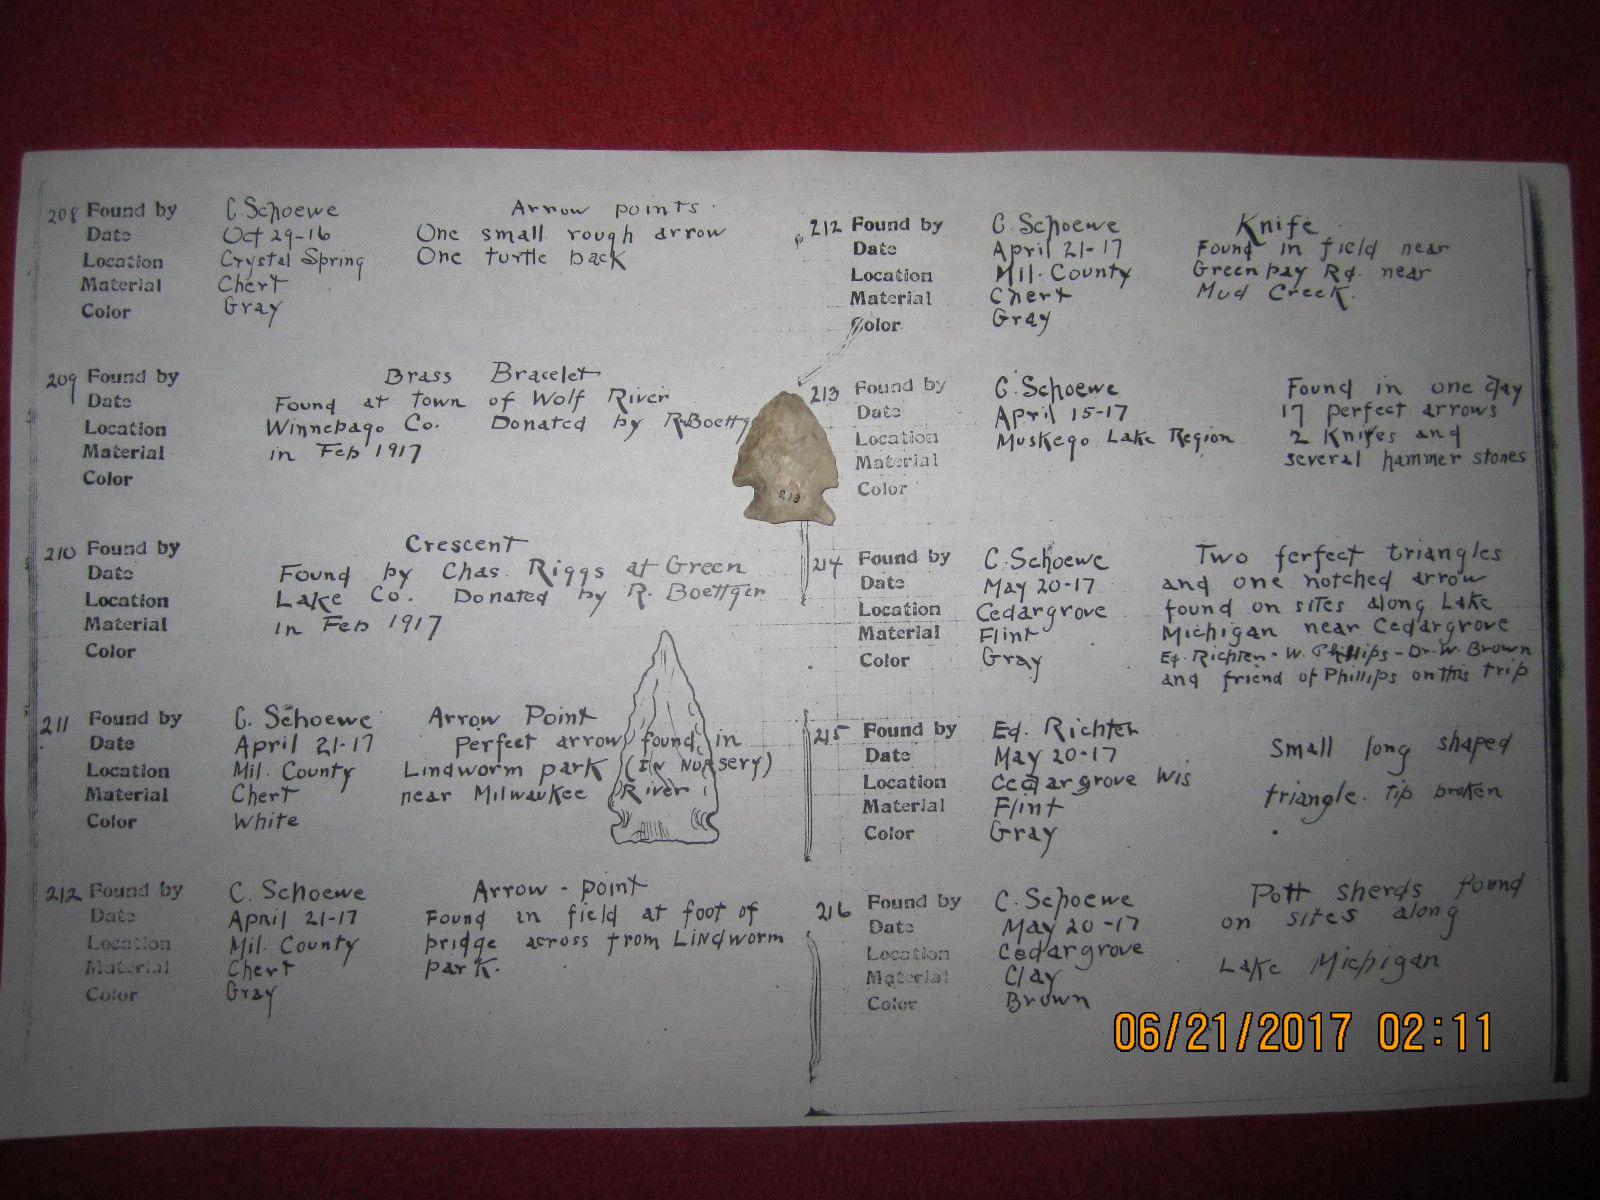 208 Found by C. Schoewe Arrow points.
Date Oct 29-16 One small rough arrow
Location Crystal Spring One turtle back
Material Chert
Color Gray
209 Found by Brass Bracelet
Date Found at town of Wolf River
Location Winnebago Co. Donated by R. Boettg
Material in Feb 1917
Color
210 Found by Crescent
Date Found by Chas. Riggs at Green
Location Lake Co. Donated by R. Boettger
Material in Feb 1917
Color
211 Found by C. Schoewe Arrow Point
Date April 21-17 Perfect arrow found in
Location Mil. County Lindworm park (In Nursery)
Material Chert near Milwaukee River
Color White
212 Found by C. Schoewe Arrow - point
Date April 21-17 Found in field at foot of
Location Mil. County bridge across from Lindworm
Material Chert park.
Color Gray
212 Found by C. Schoewe Knife
Date April 21-17 Found in field near
Location Mil. County Greenbay Rd. near
Material Chert Mud Creek.
Color Gray
213 Found by C. Schoewe Found in one day
Date April 15-17 17 perfect arrows
Location Muskego Lake Region 2 Knifes and
Material several hammer stones
Color
213
214 Found by C. Schoewe Two ferfect triangles
Date May 20-17 and one notched arrow
Location Cedargrove found on sites along Lake
Material Flint Michigan near Cedargrove
Color Gray Ed. Richter - W. Phillips - Dr. W. Brown
and friend of Phillips on this trip
215 Found by Ed. Richter
Date May 20-17 Small long shaped
Location Cedargrove Wis
Material Flint triangle. tip broken
Color Gray
216 Found by C. Schoewe Pott sherds found
Date May 20-17 on sites along
Location Cedargrove
Material Clay Lake Michigan
Color Brown
06/21/2017 02:11